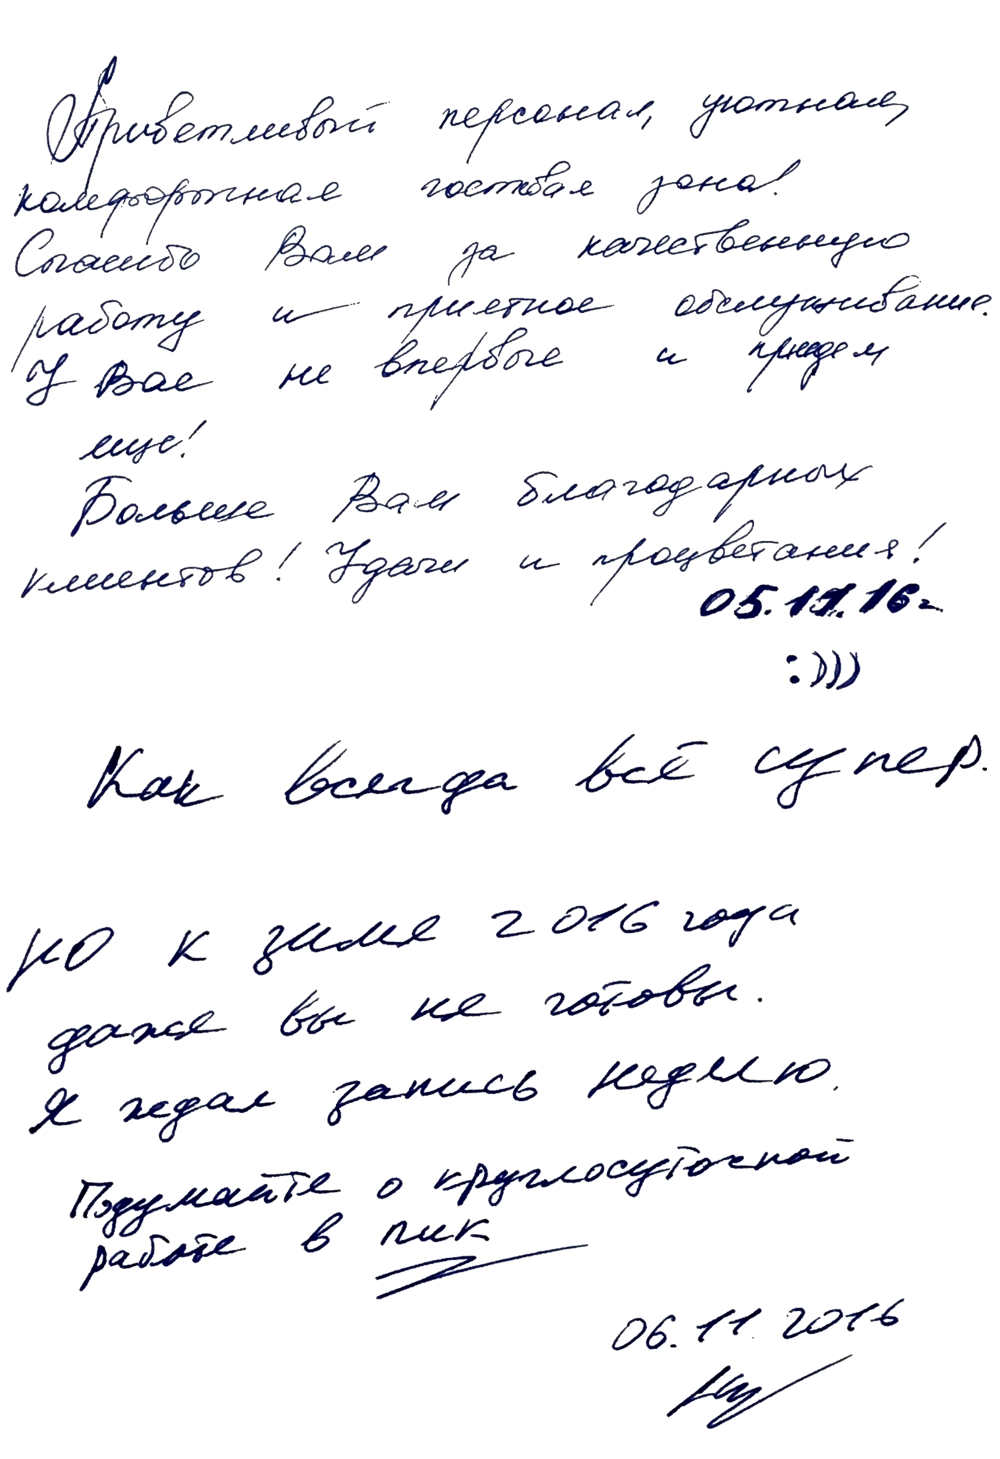 Приветливый персонал, уютная,
комфортная гостевая зона!
Спасибо Вам за качественную
работу и приятное обслуживание.
У Вас не впервые и придем
еще!
Больше Вам благодарных
клиентов! Удачи и процветания!
05.11.16г
:)))
Как всегда всё супер.
НО к зиме 2016 года
даже вы не готовы.
Я ждал запись неделю.
Подумайте о круглосуточной
работе в пик
06.11.2016